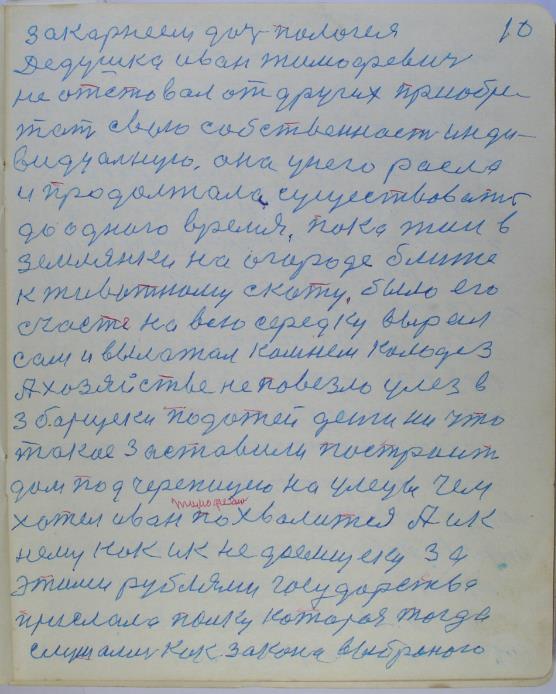 10
закарнеем доч пологея
Дедушка иван тимофревич
не отстовал от других приобре-
тат свою собственност инди-
видуалную, она унего расла
и продолжала существовать
до одного время, пока жил в
землянки на огороде ближе
к животному скоту, было его
счасте на всю середку вырал
сам и вылажал камнем колодез
А хозяйстве неповезло улез в
збанцеки подотей денги ни что
такое заставили построит
дом под черепицию на улецы чем
тимофеев
хотел иван похвалится А ик
нему как ик недоемщеку за
этими рублями государства
прислала попку которая тогда
слушали как закона выбраного